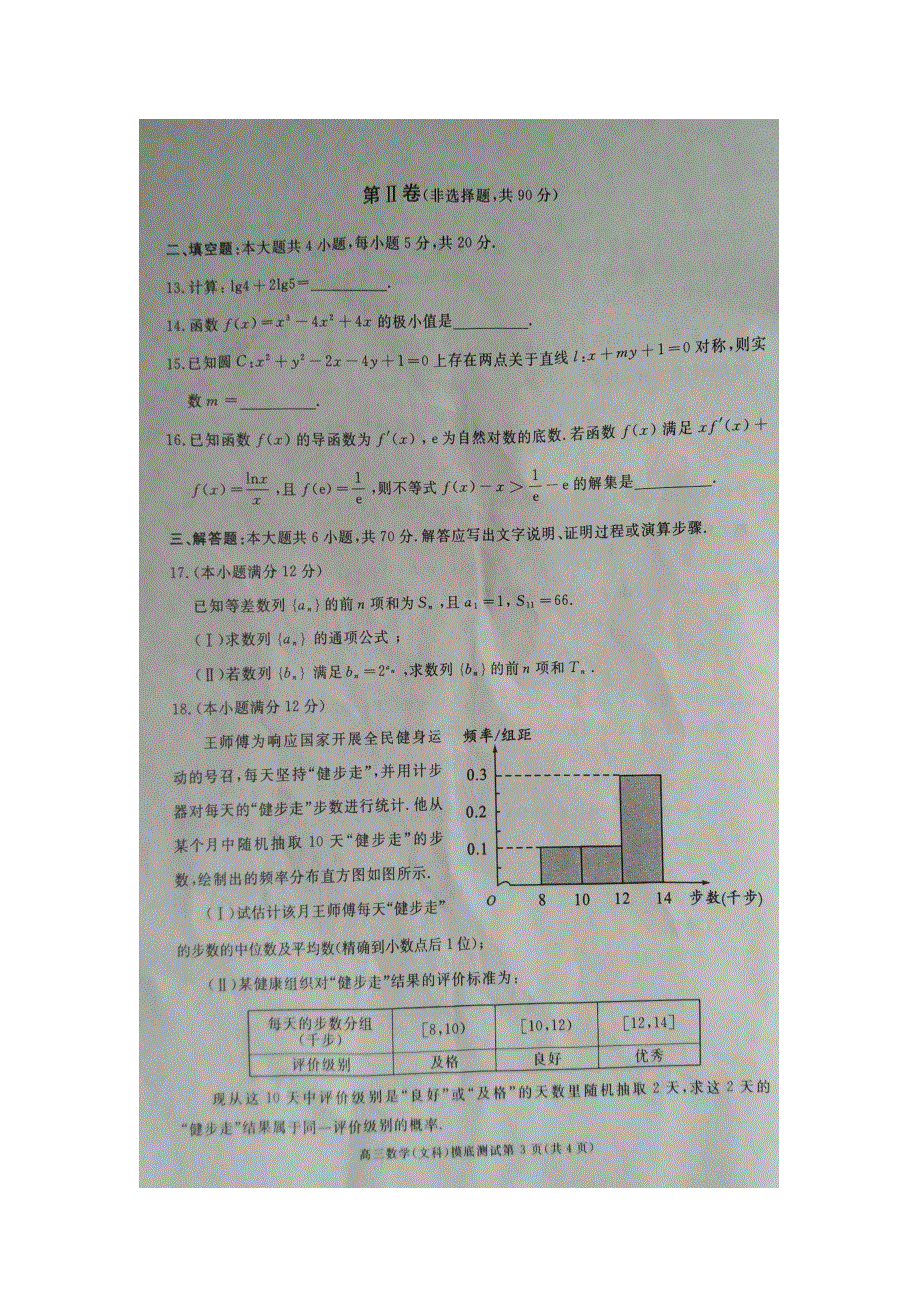 第Ⅱ卷(非选择题,共90分)
二、填空题:本大题共4小题,每小题5分,共20分.
13.计算:lg4+2lg5=__________.
14.函数 f(x)=x³-4x²+4x 的极小值是__________.
15.已知圆C:x²+y²-2x-4y+1=0上存在两点关于直线l:x+my+1=0对称,则实
数m=__________.
16.已知函数 f(x) 的导函数为 f′(x),e为自然对数的底数.若函数 f(x) 满足 xf′(x)+
f(x)=lnx/x,且 f(e)=1/e,则不等式 f(x)-x>1/e-e的解集是__________.
三、解答题:本大题共6小题,共70分.解答应写出文字说明、证明过程或演算步骤.
17.(本小题满分12分)
已知等差数列{aₙ}的前n项和为Sₙ,且a₁=1,S₁₁=66.
(Ⅰ)求数列{aₙ}的通项公式;
(Ⅱ)若数列{bₙ}满足bₙ=2^{aₙ},求数列{bₙ}的前n项和Tₙ.
18.(本小题满分12分)
王师傅为响应国家开展全民健身运
动的号召,每天坚持“健步走”,并用计步
器对每天的“健步走”步数进行统计.他从
某个月中随机抽取10天“健步走”的步
数,绘制出的频率分布直方图如图所示.
(Ⅰ)试估计该月王师傅每天“健步走”
的步数的中位数及平均数(精确到小数点后1位);
频率/组距
0.3
0.2
0.1
O 8 10 12 14 步数(千步)
(Ⅱ)某健康组织对“健步走”结果的评价标准为:
每天的步数分组(千步) [8,10) [10,12) [12,14]
评价级别 及格 良好 优秀
现从这10天中评价级别是“良好”或“及格”的天数里随机抽取2天,求这2天的
“健步走”结果属于同一评价级别的概率.
高三数学(文科)摸底测试第3页(共4页)